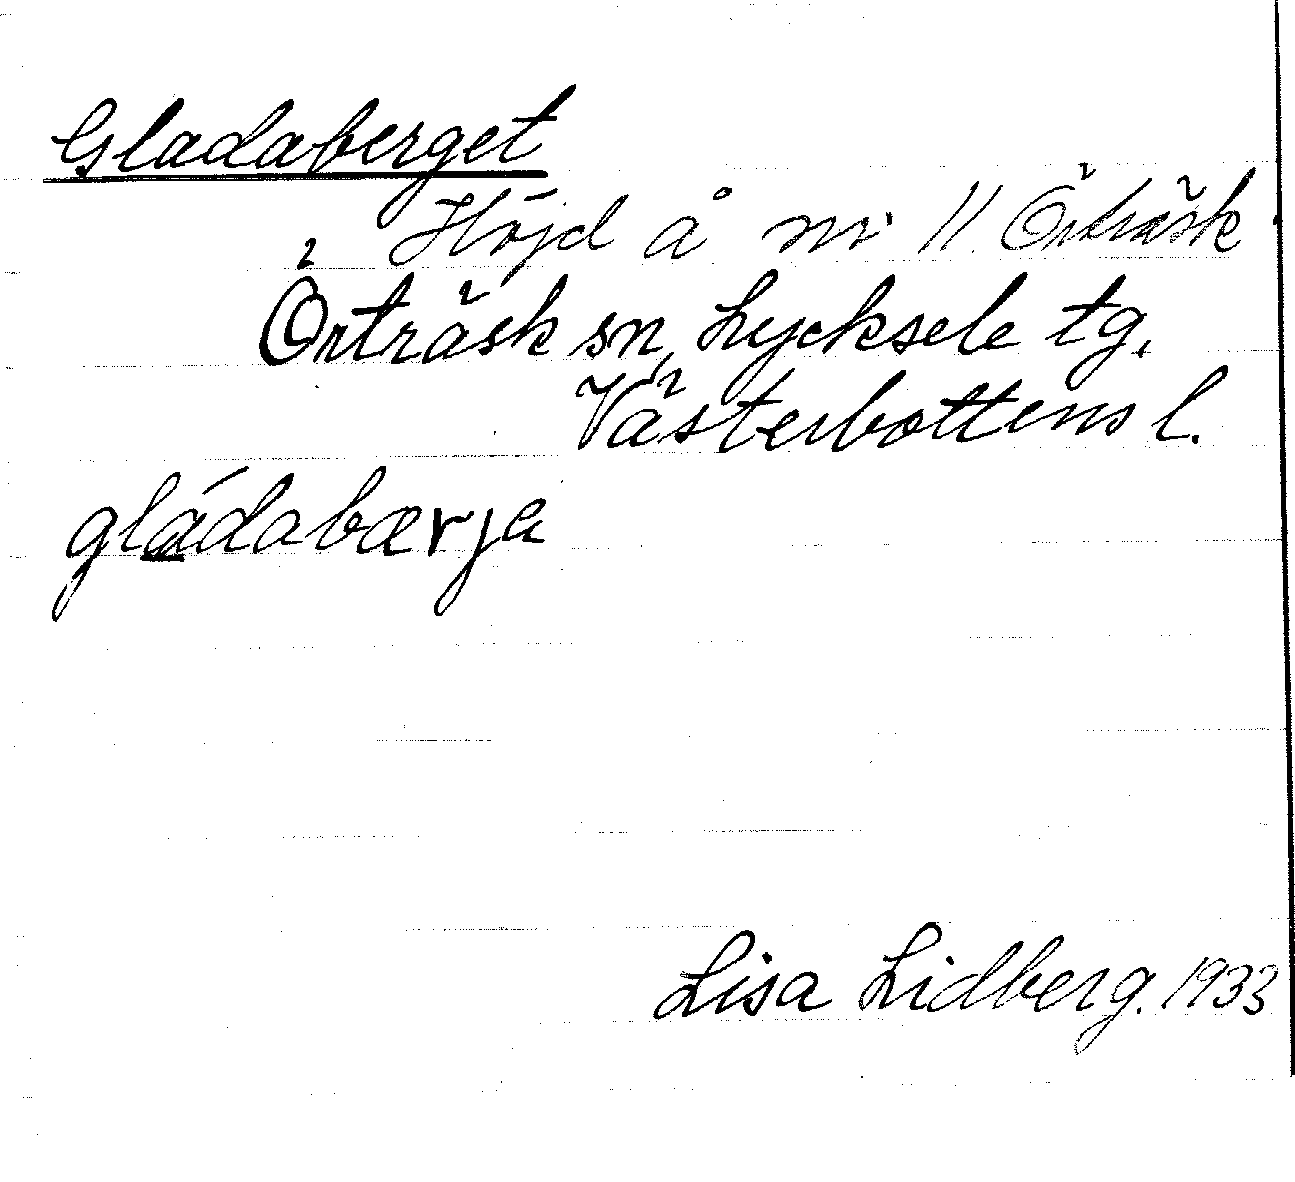 Gladaberget
Höjd å nr 11 Örträsk
Örträsk sn, Lycksele tg.
Västerbottens l.
gládabærja
Lisa Lidberg. 1933